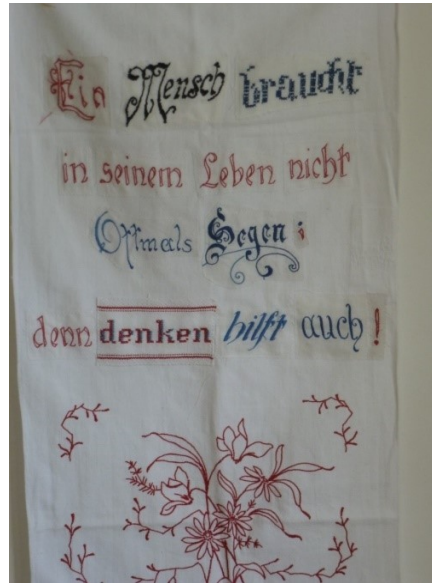 Ein Mensch braucht
in seinem Leben nicht
Oftmals Segen;
denn denken hilft auch!